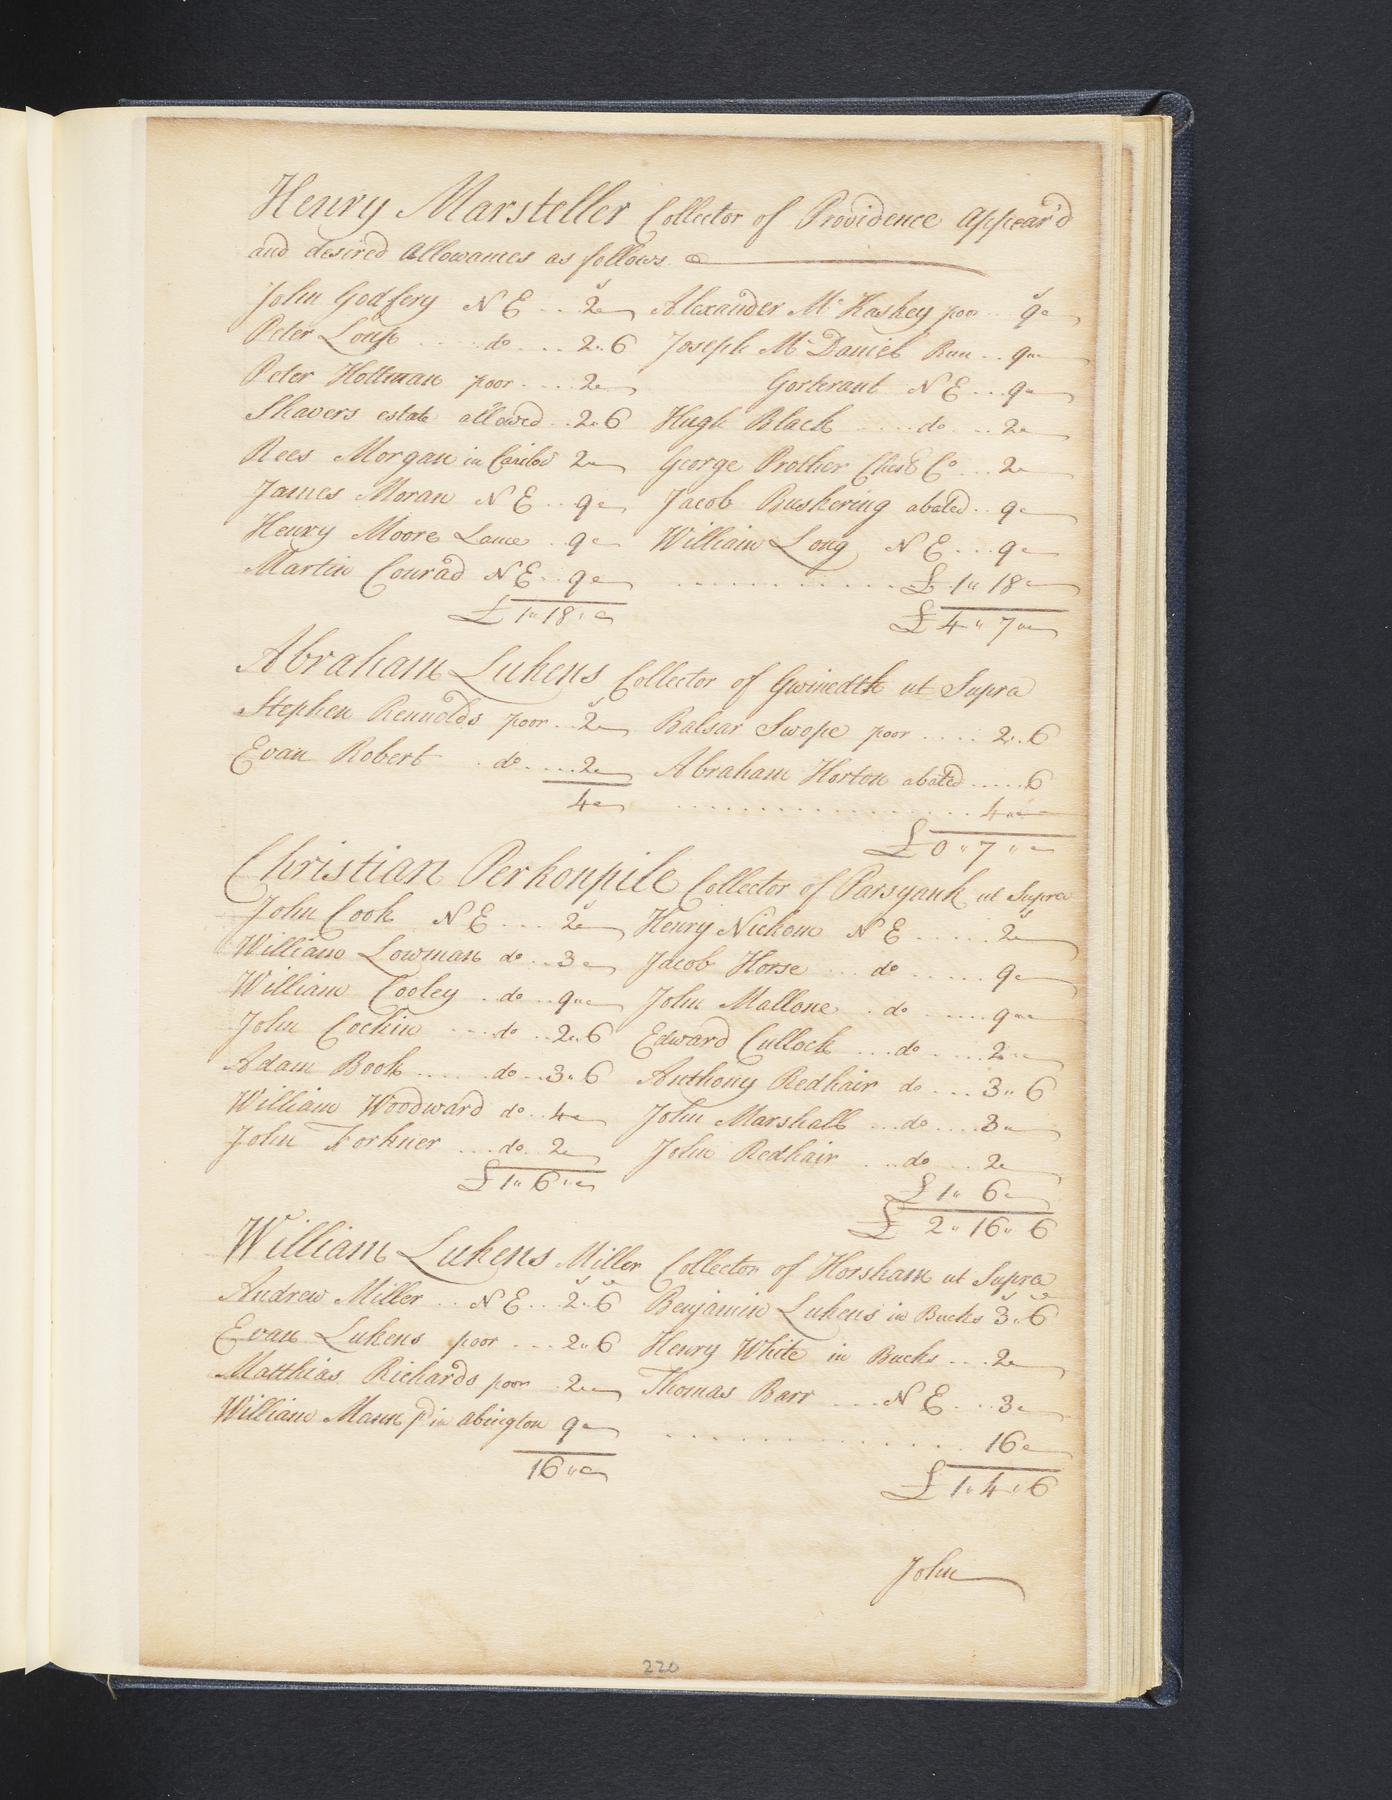 Henry Marsteller Collector of Providence appear'd
and desired allowances as follows
John Godfery N E .. 2 s Alexander Mc Kaskey poor .. 9 s
Peter Loup .... do .... 2„6 Joseph Mc Daniel Run .. 9„
Peter Holtman poor .... 2 Gorterant N E ... 9
Shavers estate allowed .. 2„6 Hugh Black .... do ... 2
Rees Morgan in 2 George Prother Chesr Co ... 2
James Moran N E .. 9 Jacob Buskering abated .. 9
Henry Moore Lame .. 9 William Long N E ... 9
Martin Conrad N E .. 9 ............ £ 1„18
£ 1„18„ £ 4„7„
Abraham Lukens Collector of Gwinedth ut Supra
Stephen Rennolds poor .. 2 s Balsar Swope poor .... 2„6
Evan Robert . do .... 2 Abraham Horton abated ..... 6
4 ................ 4„
£ 0„7„
Christian Perkonpile Collector of Parsyank ut Supra
John Cook N E .... 2 s Henry Nickom N E ..... 2 s
William Lowman do .. 3 Jacob Horse ... do ...... 9
William Cooley . do .. 9„ John Mallone . do ..... 9„
John Cochin .... do .. 2„6 Edward Cullock ... do .... 2„
Adam Book ..... do .. 3„6 Anthony Redhair do .... 3„6
William Woodward do .. 4 John Marshall ... do .... 3„
John Forkner .... do .. 2 John Redhair ... do ... 2
£ 1„6„ £ 1„6
£ 2„16„6
William Lukens Miller Collector of Horsham ut Supra
Andrew Miller .. N E .. 2„6 Benjamin Lukens in Bucks 3„6
Evan Lukens poor .... 2„6 Henry White in Bucks ... 2
Matthias Richards poor . 2„ Thomas Barr .... N E ... 3
William Mann pd in abington 9 .............. 16
16„ £ 1„4„6
John
220